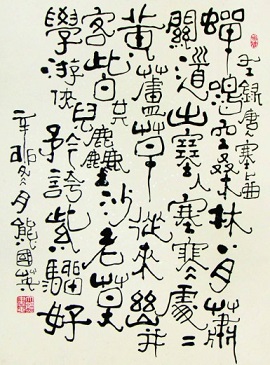 錄唐塞上曲
蟬鳴空桑林八月蕭
關道出塞入塞寒處〻
黃蘆草從來幽并
客皆共塵沙老莫
學游俠兒矜誇紫騮好
辛卯冬月熊國英